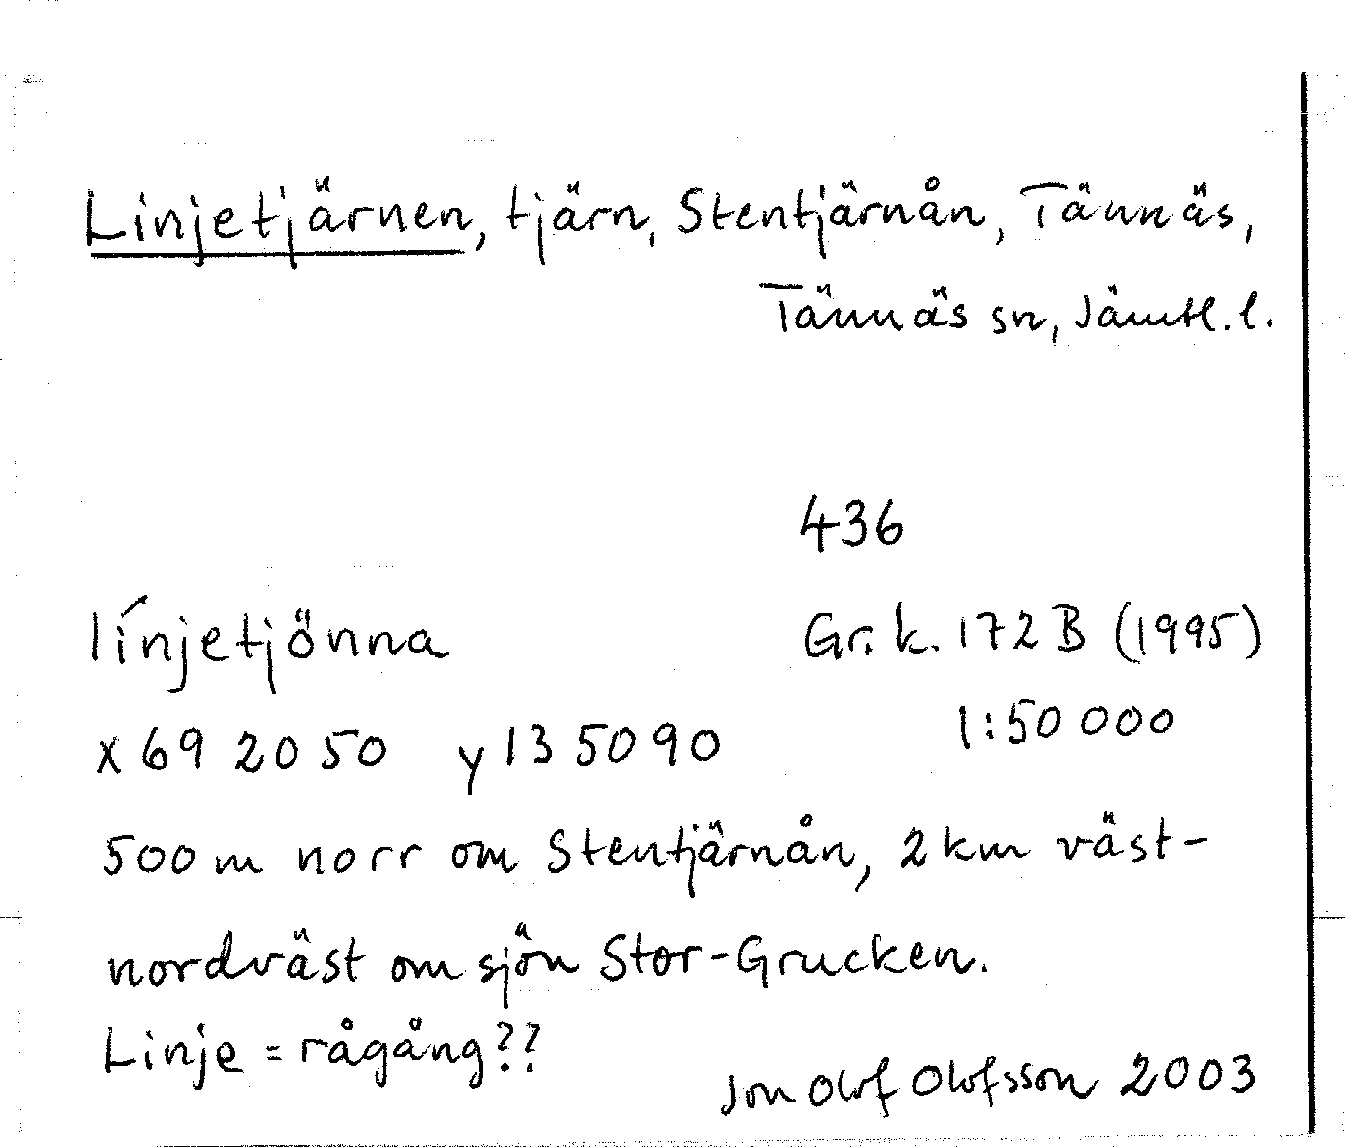 Linjetjärnen, tjärn, Stentjärnån, Tännäs,
Tännäs sn, Jämtl. l.
436
línjetjönna
Gr. k. 172 B (1995)
x 69 20 50 y 13 50 90
1:50 000
500 m norr om Stentjärnån, 2 km väst-
nordväst om sjön Stor-Grucken.
Linje = rågång??
Jon Olof Olofsson 2003